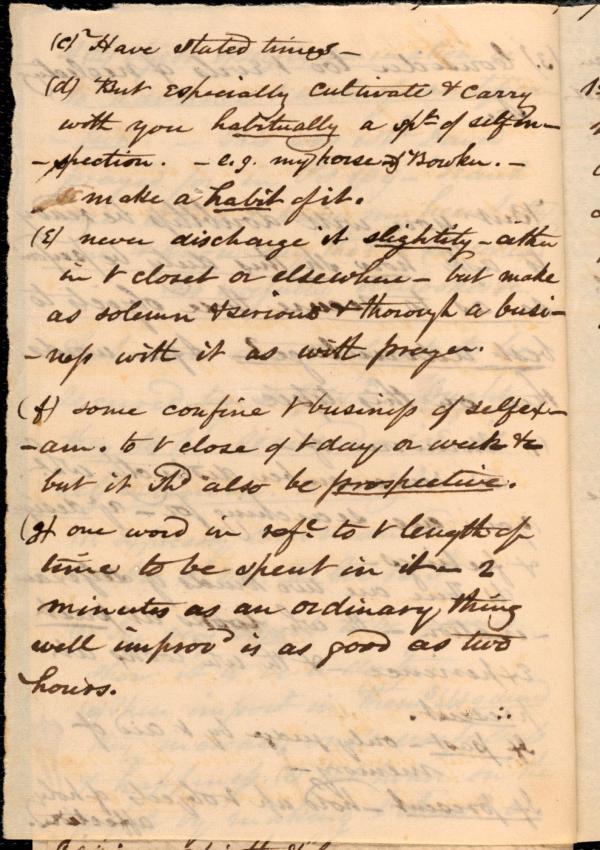 (c) Have stated times -
(d) But especially cultivate & carry
with you habitually a spt of selfin-
-spection. - e.g. my horse & Bowker. -
make a habit of it.
(E) never discharge it slightily - either
in t closet or elsewhere - but make
as solemn & serious & thorough a busi-
-ness with it as with prayer.
(f) some confine t business of selfex-
-am. to t close of t day or week &c
but it shd also be prospective.
(g) one word in refce to t length of
time to be spent in it - 2
minutes as an ordinary thing
well improvd is as good as two
hours.